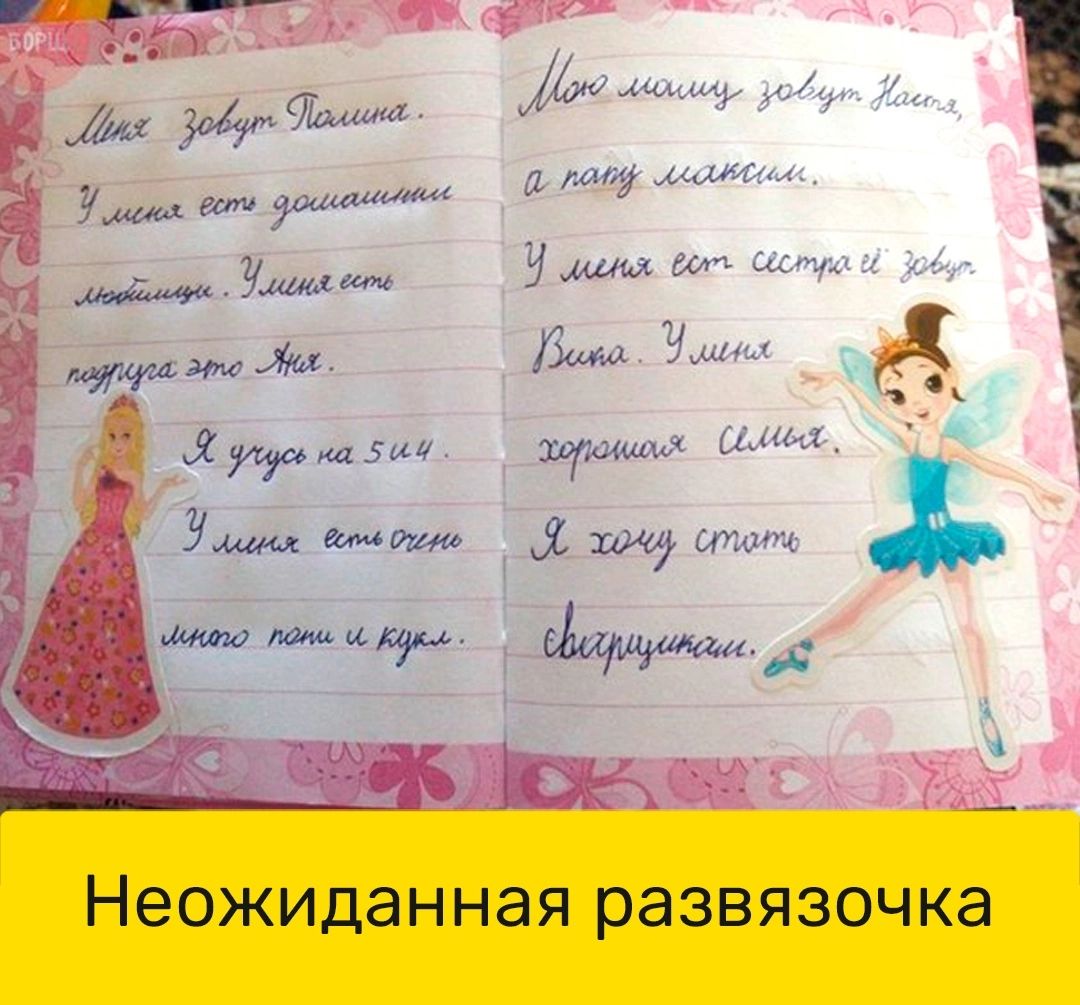 БОРЩ
Меня зовут Полина.
У меня есть домашнии
любимцы. У меня есть
подруга это Аня.
Я учусь на 5 и 4.
У меня есть очень
много пони и кукл.
Мою маму зовут Настя,
а папу максим.
У меня ест сестра её зовут
Вика. У меня
хорошая семья.
Я хочу стать
сварщикам.
Неожиданная развязочка